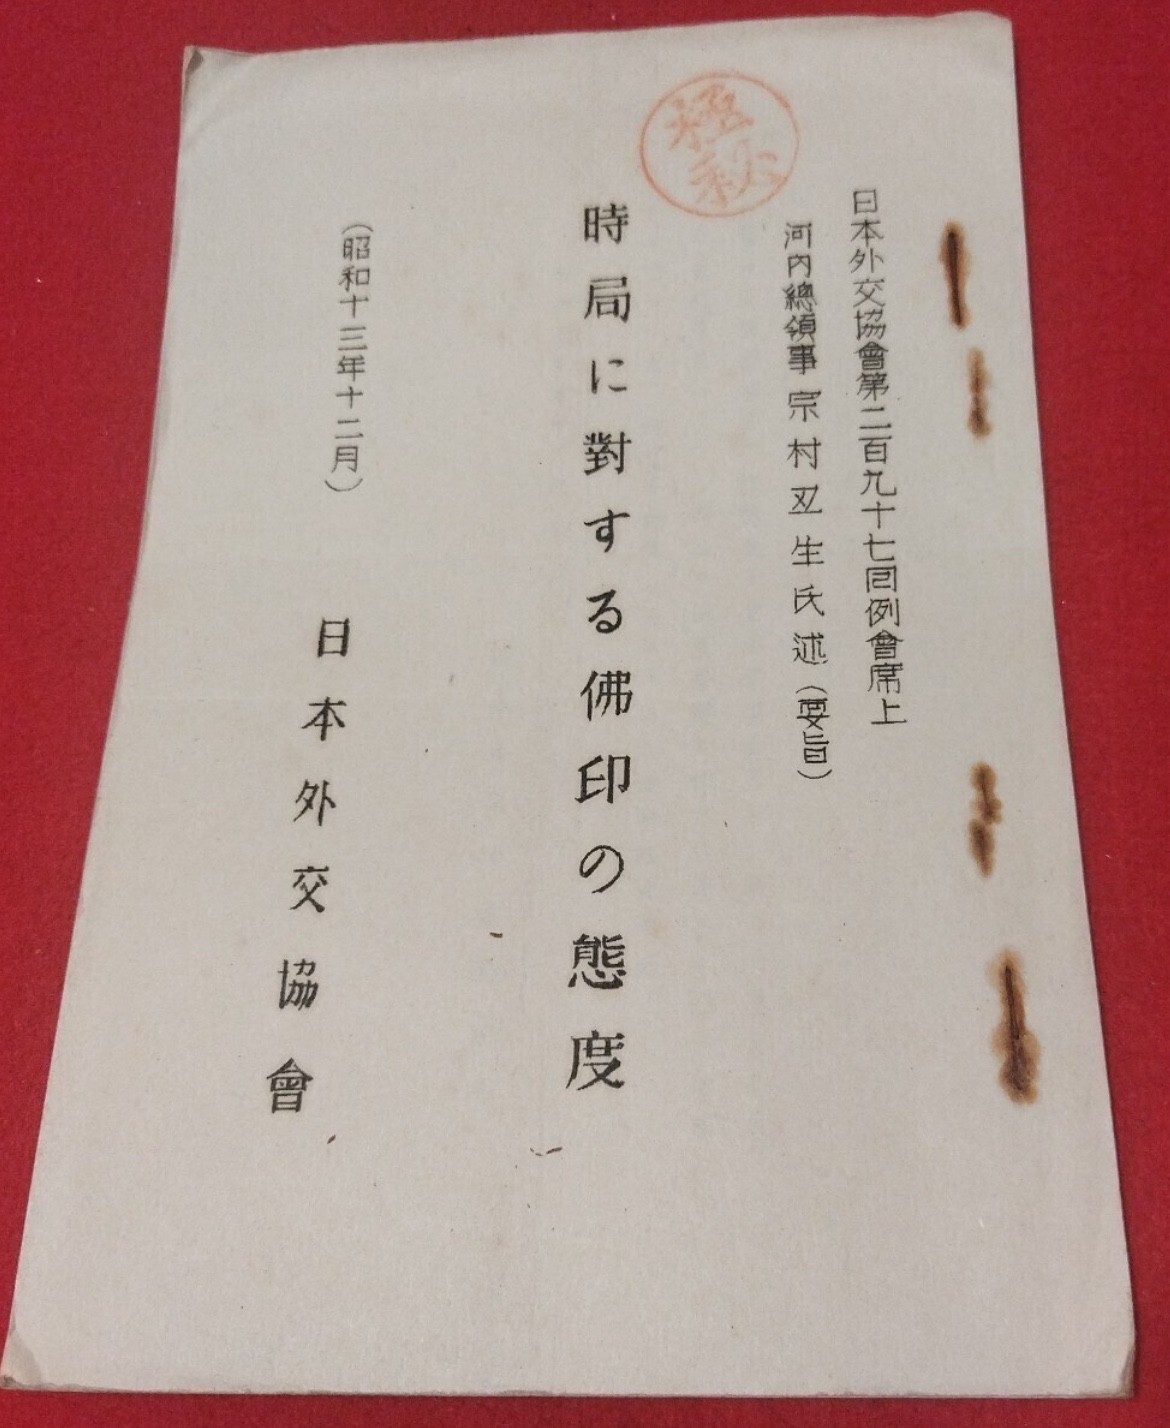 極秘
日本外交協會第二百九十七回例會席上
河内總領事 宗村丑生氏述（要旨）
時局に對する佛印の態度
（昭和十三年十二月）
日本外交協會